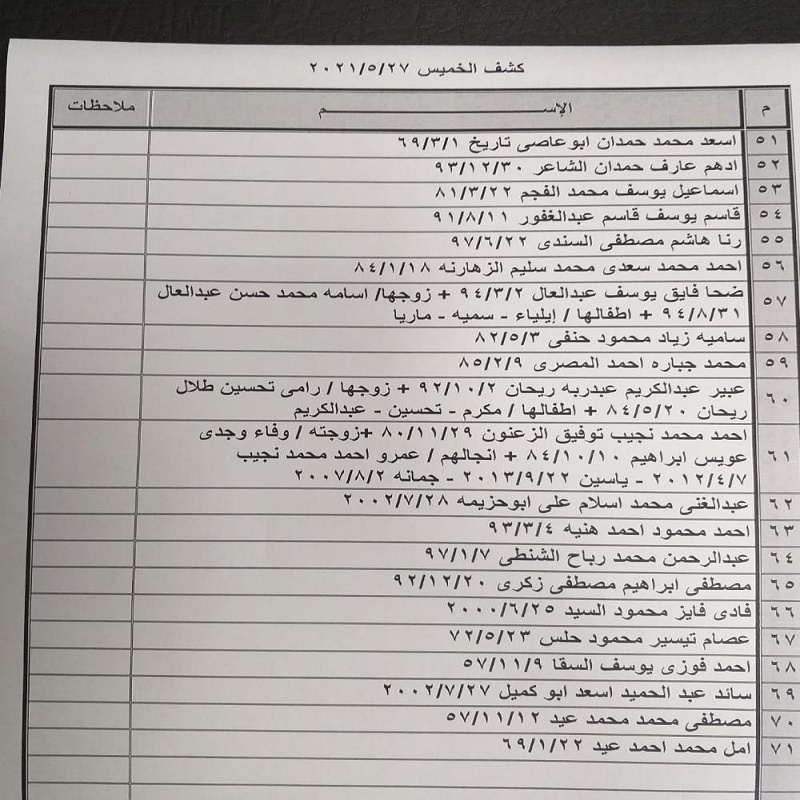 كشف الخميس ٢٠٢١/٥/٢٧
م الإســـــم ملاحظات
٥١ اسعد محمد حمدان ابوعاصى تاريخ ٦٩/٣/١
٥٢ ادهم عارف حمدان الشاعر ٩٣/١٢/٣٠
٥٣ اسماعيل يوسف محمد الفجم ٨١/٣/٢٢
٥٤ قاسم يوسف قاسم عبدالغفور ٩١/٨/١١
٥٥ رنا هاشم مصطفى السندى ٩٧/٦/٢٢
٥٦ احمد محمد سعدى محمد سليم الزهارنه ٨٤/١/١٨
٥٧ ضحا فايق يوسف عبدالعال ٩٤/٣/٢ + زوجها/ اسامه محمد حسن عبدالعال
٩٤/٨/٣١ + اطفالها / إيلياء - سميه - ماريا
٥٨ ساميه زياد محمود حنفى ٨٢/٥/٣
٥٩ محمد جباره احمد المصرى ٨٥/٢/٩
٦٠ عبير عبدالكريم عبدربه ريحان ٩٢/١٠/٢ + زوجها / رامى تحسين طلال
ريحان ٨٤/٥/٢٠ + اطفالها / مكرم - تحسين - عبدالكريم
٦١ احمد محمد نجيب توفيق الزعنون ٨٠/١١/٢٩ +زوجته / وفاء وجدى
عويس ابراهيم ٨٤/١٠/١٠ + انجالهم / عمرو احمد محمد نجيب
٢٠١٢/٤/٧ - ياسين ٢٠١٣/٩/٢٢ - جمانه ٢٠٠٧/٨/٢
٦٢ عبدالغنى محمد اسلام على ابوحزيمه ٢٠٠٢/٧/٢٨
٦٣ احمد محمود احمد هنيه ٩٣/٣/٤
٦٤ عبدالرحمن محمد رباح الشنطى ٩٧/١/٧
٦٥ مصطفى ابراهيم مصطفى زكرى ٩٢/١٢/٢٠
٦٦ فادى فايز محمود السيد ٢٠٠٠/٦/٢٥
٦٧ عصام تيسير محمود حلس ٧٢/٥/٢٣
٦٨ احمد فوزى يوسف السقا ٥٧/١١/٩
٦٩ ساند عبد الحميد اسعد ابو كميل ٢٠٠٢/٧/٢٧
٧٠ مصطفى محمد محمد عيد ٥٧/١١/١٢
٧١ امل محمد احمد عيد ٦٩/١/٢٢